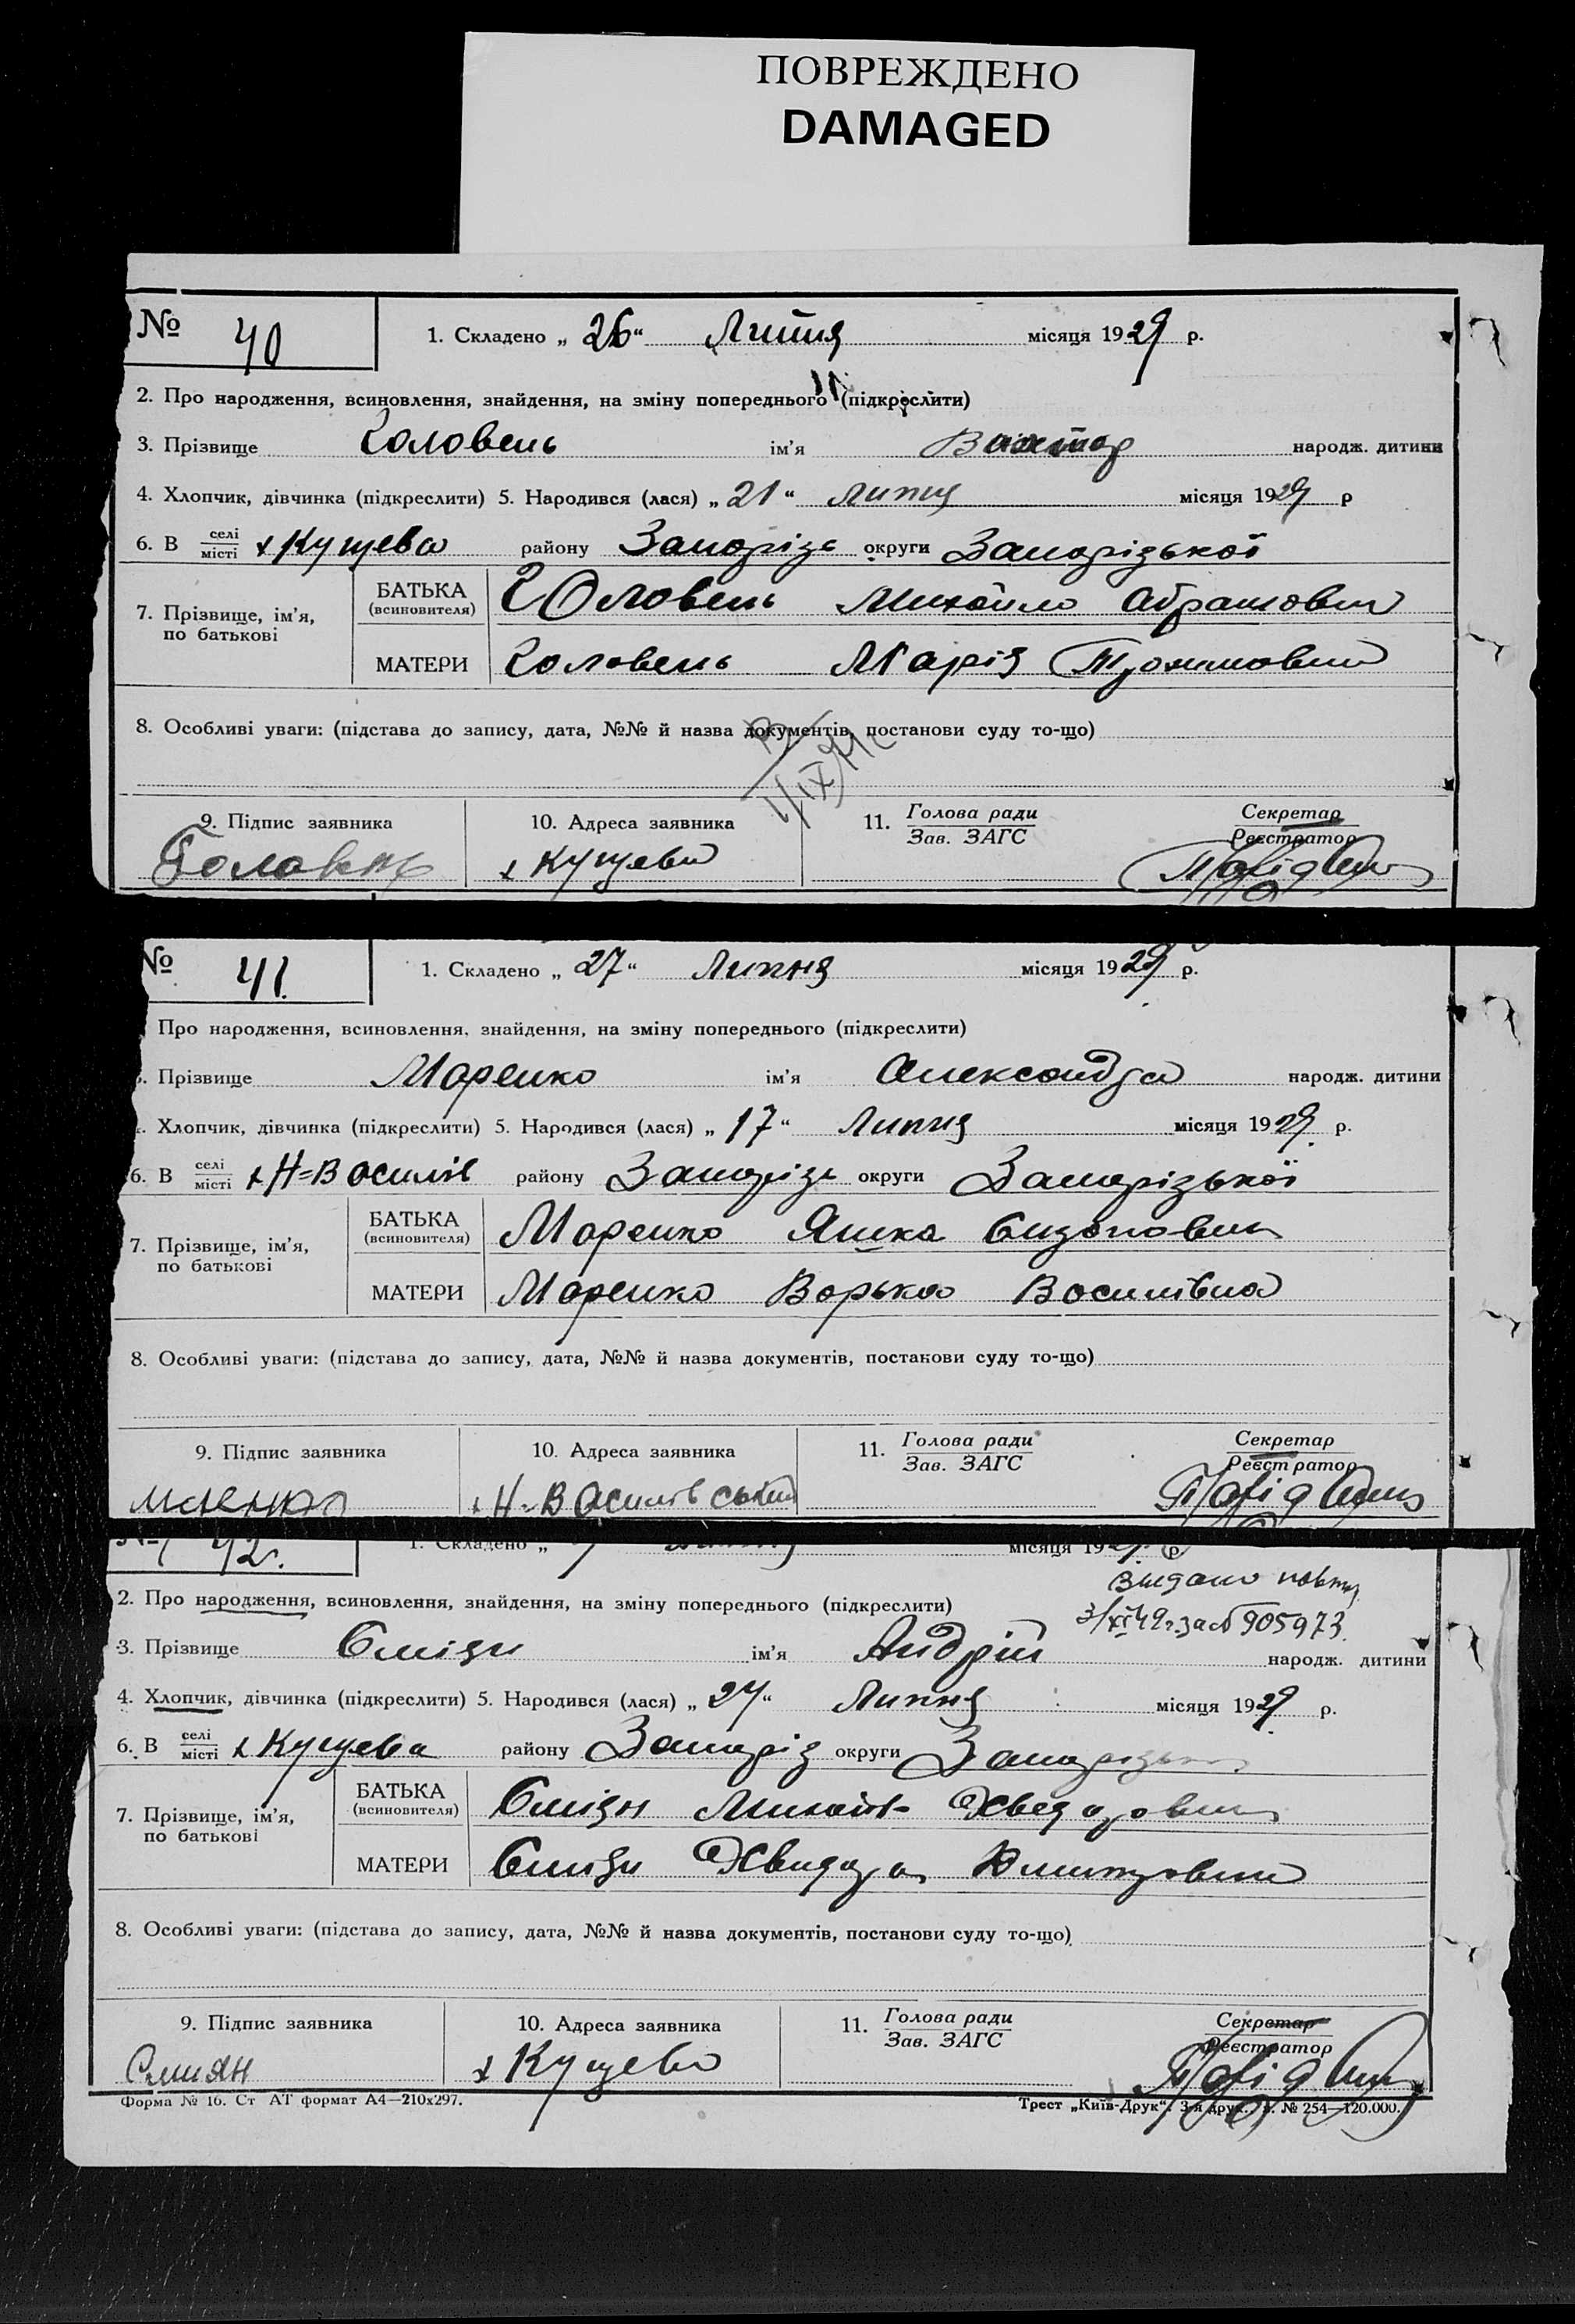 ПОВРЕЖДЕНО
DAMAGED
№ 40 1. Складено „ 26 “ Липня місяця 1929 р.
2. Про народження, всиновлення, знайдення, на зміну попереднього (підкреслити)
3. Прізвище Головень ім'я Виктор народж. дитини
4. Хлопчик, дівчинка (підкреслити) 5. Народився (лася) „ 21 “ липня місяця 1929 р
6. В селі місті х Кущева району Запоріз округи Запорізької
7. Прізвище, ім'я, по батькові
БАТЬКА (всиновителя) Головень Михайло Абрамович
МАТЕРИ Головень Марія
8. Особливі уваги: (підстава до запису, дата, №№ й назва документів, постанови суду то-що)
9. Підпис заявника 10. Адреса заявника 11. Голова ради Зав. ЗАГС Секретар Реєстратор
Головнь х Кущева
№ 41. 1. Складено „ 27 “ Липня місяця 1929 р.
Про народження, всиновлення, знайдення, на зміну попереднього (підкреслити)
Прізвище Моренко ім'я Александра народж. дитини
Хлопчик, дівчинка (підкреслити) 5. Народився (лася) „ 17 “ Липня місяця 1929. р.
6. В селі місті х Н=Василів району Запоріз округи Запорізької
7. Прізвище, ім'я, по батькові
БАТЬКА (всиновителя) Моренко Яшка
МАТЕРИ Моренко Варька Василівна
8. Особливі уваги: (підстава до запису, дата, №№ й назва документів, постанови суду то-що)
9. Підпис заявника 10. Адреса заявника 11. Голова ради Зав. ЗАГС Секретар Реєстратор
х Н-Василівський
№ 42. 1. Складено „ місяця 1929 р
2. Про народження, всиновлення, знайдення, на зміну попереднього (підкреслити)
3/XI 49 г. за № 905973.
3. Прізвище ім'я Андрій народж. дитини
4. Хлопчик, дівчинка (підкреслити) 5. Народився (лася) „ 24 “ Липня місяця 1929. р.
6. В селі місті х Кущева району Запоріз округи Запорізької
7. Прізвище, ім'я, по батькові
БАТЬКА (всиновителя) Михайло Хведорович
МАТЕРИ
8. Особливі уваги: (підстава до запису, дата, №№ й назва документів, постанови суду то-що)
9. Підпис заявника 10. Адреса заявника 11. Голова ради Зав. ЗАГС Секретар Реєстратор
х Кущева
Форма № 16. Ст АТ формат А4—210x297. Трест „Київ-Друк“. 3-я друк. № 254—120.000.